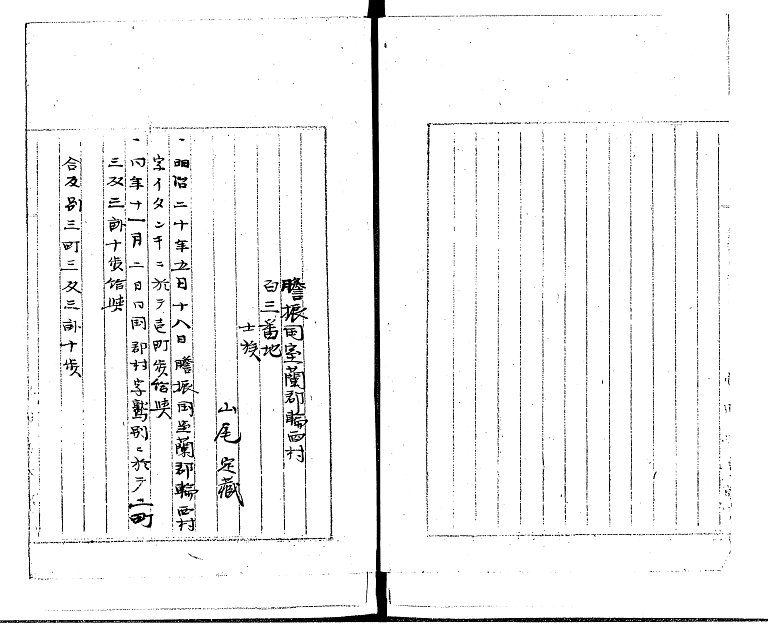 膽振国室蘭郡輪西村
百三番地
士族
山尾定藏
一明治二十年五月十八日膽振国室蘭郡輪西村
字イタンキニ於テ壱町歩給與
一同年十一月二日同国郡村字鷲別ニ於テ二町
三反三畝十歩給與
合反別三町三反三畝十歩